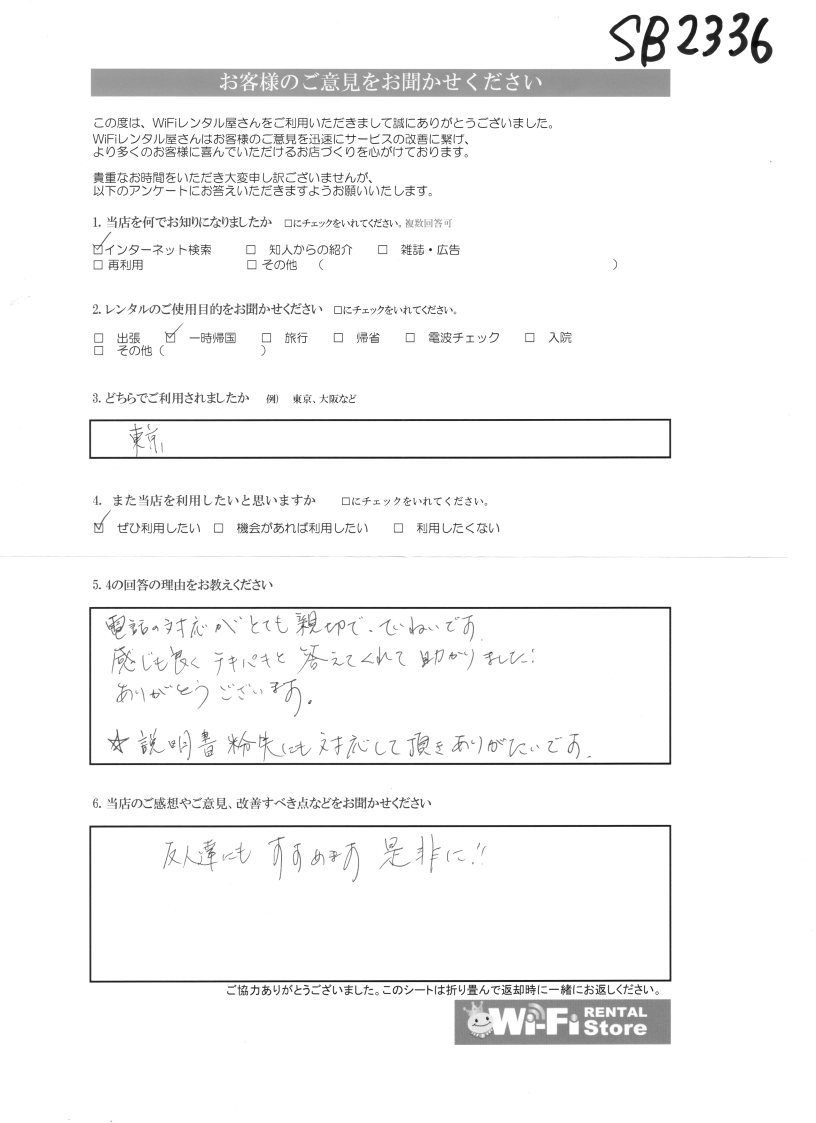 SB2336
お客様のご意見をお聞かせください
この度は、WiFiレンタル屋さんをご利用いただきまして誠にありがとうございました。
WiFiレンタル屋さんはお客様のご意見を迅速にサービスの改善に繋げ、
より多くのお客様に喜んでいただけるお店づくりを心がけております。
貴重なお時間をいただき大変申し訳ございませんが、
以下のアンケートにお答えいただきますようお願いいたします。
1. 当店を何でお知りになりましたか □にチェックをいれてください。複数回答可
☑インターネット検索 □ 知人からの紹介 □ 雑誌・広告
□ 再利用 □ その他 ( )
2. レンタルのご使用目的をお聞かせください □にチェックをいれてください。
□ 出張 ☑ 一時帰国 □ 旅行 □ 帰省 □ 電波チェック □ 入院
□ その他 ( )
3. どちらでご利用されましたか 例) 東京、大阪など
東京
4. また当店を利用したいと思いますか □にチェックをいれてください。
☑ ぜひ利用したい □ 機会があれば利用したい □ 利用したくない
5. 4の回答の理由をお教えください
電話の対応がとても親切で、ていねいです
感じも良く テキパキと 答えてくれて 助かりました!
ありがとうございます。
☆ 説明書 紛失にも 対応して 頂き ありがたいです.
6. 当店のご感想やご意見、改善すべき点などをお聞かせください
友人達にも すすめます 是非に!!
ご協力ありがとうございました。このシートは折り畳んで返却時に一緒にお返しください。
Wi-Fi RENTAL Store